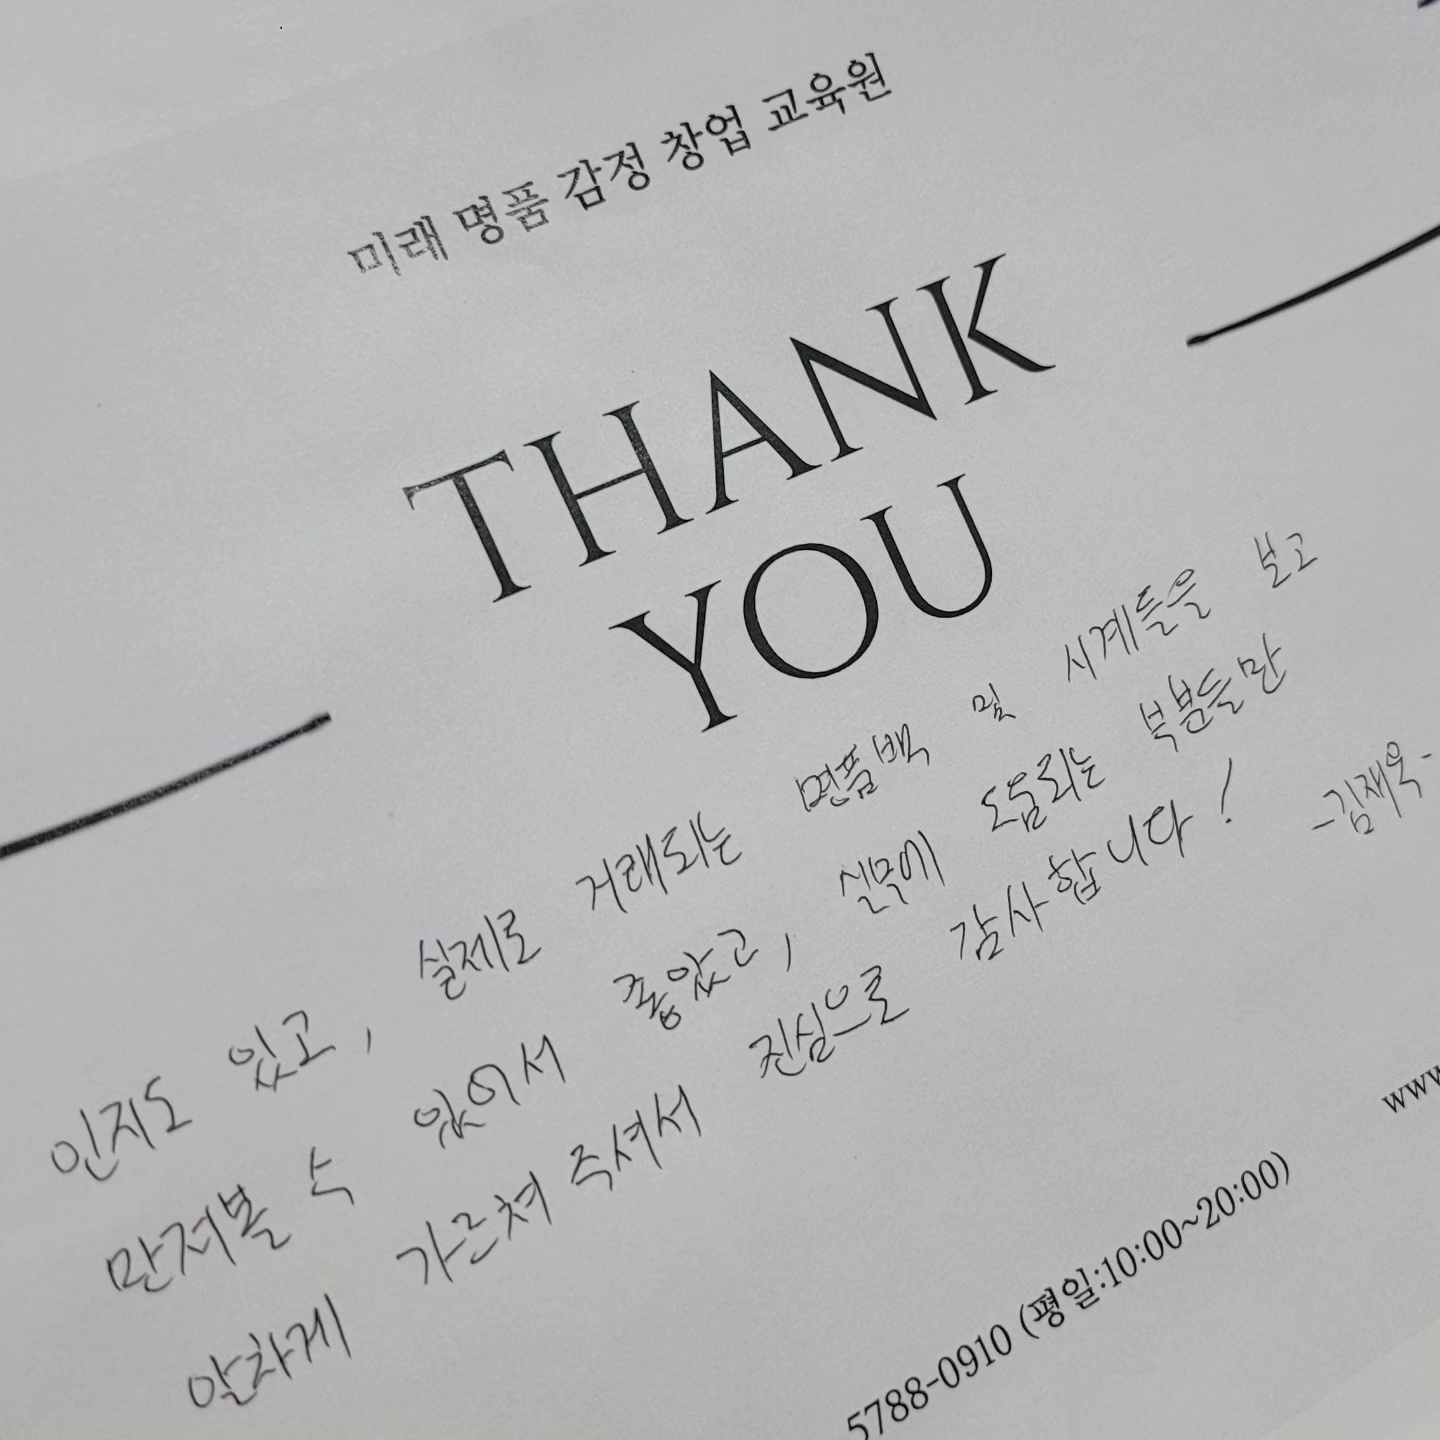 미래 명품 감정 창업 교육원
THANK
YOU
인지도 있고, 실제로 거래되는 명품백 및 시계들을 보고
만져볼 수 있어서 좋았고, 실무에 도움되는 부분들만
알차게 가르쳐 주셔서 진심으로 감사합니다!
-김재옥-
www
5788-0910 (평일:10:00~20:00)